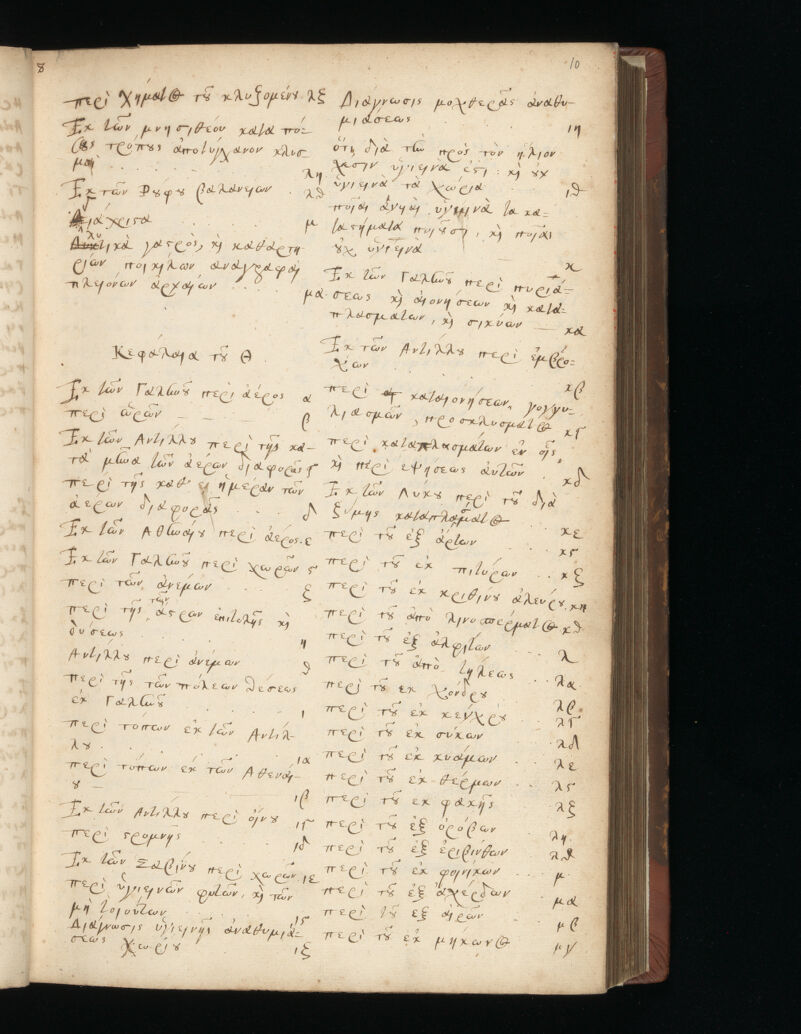 8
10
περὶ χήματος τοῦ κλυζομένου λζ
Ἐκ τῶν μνησιθέου κατὰ πό-
σους τρόπους ἀποτυγχάνον κλυσ-
μα λη
Ἐκ τῶν Ῥούφου βαλάνειων λθ
Διάχριστα μ
λυτικὰ γαστρὸς, καὶ καθαρτη-
ρίων ποικίλων ἀναγραφαὶ
πλειόνων ἀρχαίων μα
Κεφάλαια τοῦ Θ
Ἐκ τῶν Γαληνοῦ περὶ ἀέρος α
περὶ ὡρῶν β
Ἐκ τῶν Ἀντύλλου περὶ τῆς κα-
τὰ μῆνα τῶν ἀέρων διαφορᾶς γ
περὶ τῆς καθ' ἡμέραν τῶν
ἀέρων διαφορᾶς δ
Ἐκ τῶν Ἀθηναίου περὶ ἀέρος ε
Ἐκ τῶν Γαληνοῦ περὶ χωρῶν ς
περὶ τῶν ἀνέμων ζ
περὶ τῆς τῶν ἄστρων ἐπιτολῆς καὶ
δύσεως η
Ἀντύλλου περὶ ἀνέμων θ
περὶ τῆς τῶν πόλεων θέσεως
ἐκ Γαληνοῦ ι
περὶ τόπων ἐκ τῶν Ἀντύλ-
λου ια
περὶ τόπων ἐκ τῶν Ἀθεναί-
ου ιβ
Ἐκ τῶν Ἀντύλλου περὶ οἴκου ιγ
περὶ στρωμνῆς ιδ
Ἐκ τῶν Σαβίνου περὶ χωρῶν ιε
περὶ ὑγιεινῶν φυτῶν, καὶ τῶν
μὴ τοιούτων ις
Διάγνωσις ὑγιεινῆς ἀναθυμιά-
σεως χωρίου ιζ
Διάγνωσις μοχθερᾶς ἀναθυ-
μιάσεως ιη
ὅτι διὰ τὴν πρὸς τὸν ἥλιον
σχέσιν ὑγιεινά ἐστι καὶ οὐχ
ὑγιεινὰ τὰ χωρία ιθ
ποῖαι ὑγιεινὰ τὰ κα-
ταστήματα ποιοῦσι, καὶ ποῖαι
οὐχ ὑγιεινά κ
Ἐκ τῶν Γαληνοῦ περὶ πυριά-
σεως καὶ αἰονήσεων καὶ κατα-
πλασμάτων, καὶ σικύων κα
Ἐκ τῶν Ἀντύλλου περὶ ἐμβρο-
χῶν κβ
περὶ καταιονήσεων, γογγυ-
λιασμῶν, προσκλυσματος κγ
περὶ καταπλασμάτων ἐν οἷς
καὶ περὶ ἑψήσεως αὐτῶν κδ
Ἐκ τῶν Λύκου περὶ τοῦ διὰ
ζύμης καταπλάσματος κε
περὶ τοῦ ἐξ ἄρτων κς
περὶ τοῦ ἐκ πιτύρων κζ
περὶ τοῦ ἐκ κριθίνου ἀλεύρου κη
περὶ τοῦ ἀπὸ λινοσπέρματος κθ
περὶ τοῦ ἐξ ἀλφίτων λ
περὶ τοῦ ἀπὸ τήλεως λα
περὶ τοῦ ἐκ χόνδρου λβ
περὶ τοῦ ἐκ κέγχρου λγ
περὶ τοῦ ἐκ σύκων λδ
περὶ τοῦ ἐκ κυάμων λε
περὶ τοῦ ἐκ θέρμων λς
περὶ τοῦ ἐκ φακῆς λζ
περὶ τοῦ ἐξ ὀρόβων λη
περὶ τοῦ ἐξ ἐρεβίνθων λθ
περὶ τοῦ ἐκ φοινίκων μ
περὶ τοῦ ἐξ ἀχέρδων μα
περὶ τοῦ ἐξ αἰρῶν μβ
περὶ τοῦ ἐκ μήκωνος μγ